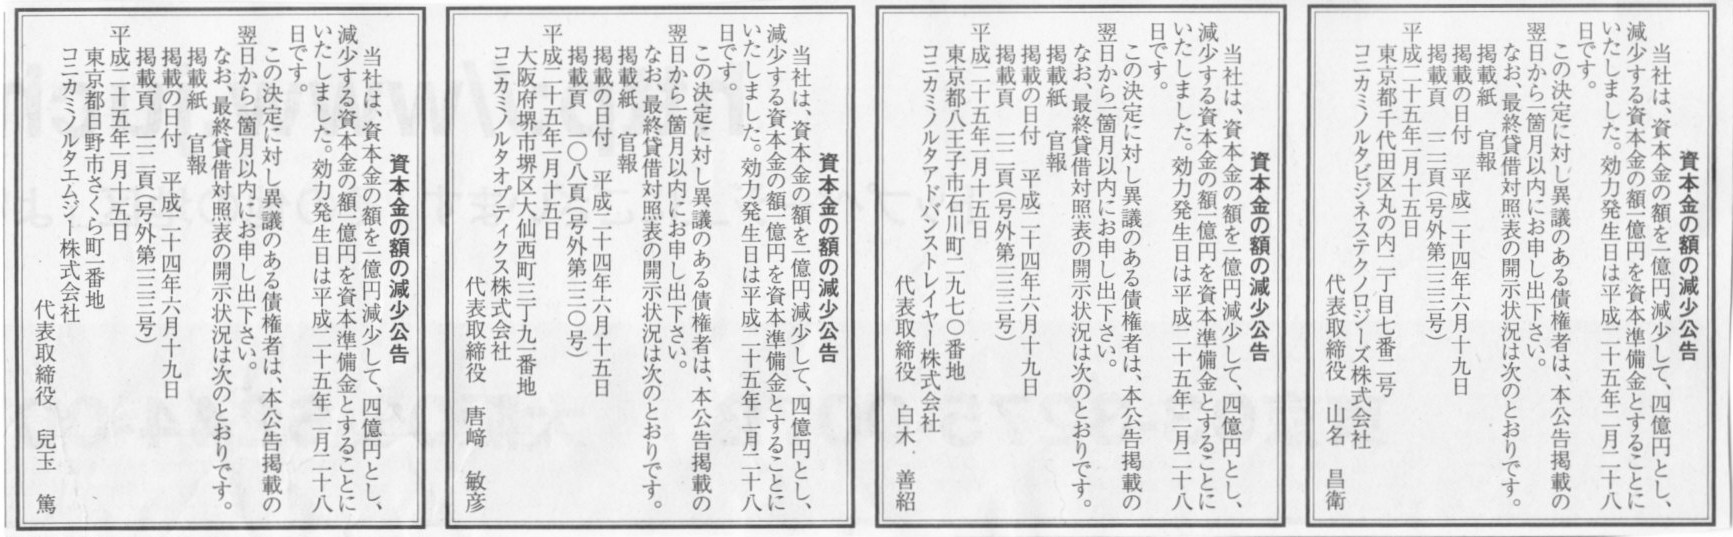 資本金の額の減少公告
当社は、資本金の額を一億円減少して、四億円とし、
減少する資本金の額一億円を資本準備金とすることに
いたしました。効力発生日は平成二十五年二月二十八
日です。
この決定に対し異議のある債権者は、本公告掲載の
翌日から一箇月以内にお申し出下さい。
なお、最終貸借対照表の開示状況は次のとおりです。
掲載紙　官報
掲載の日付　平成二十四年六月十九日
掲載頁　一二二頁(号外第一三三号)
平成二十五年一月十五日
東京都千代田区丸の内二丁目七番二号
コニカミノルタビジネステクノロジーズ株式会社
代表取締役　山名　昌衛
資本金の額の減少公告
当社は、資本金の額を一億円減少して、四億円とし、
減少する資本金の額一億円を資本準備金とすることに
いたしました。効力発生日は平成二十五年二月二十八
日です。
この決定に対し異議のある債権者は、本公告掲載の
翌日から一箇月以内にお申し出下さい。
なお、最終貸借対照表の開示状況は次のとおりです。
掲載紙　官報
掲載の日付　平成二十四年六月十九日
掲載頁　一二一頁(号外第一三三号)
平成二十五年一月十五日
東京都八王子市石川町二九七〇番地
コニカミノルタアドバンストレイヤー株式会社
代表取締役　白木　善紹
資本金の額の減少公告
当社は、資本金の額を一億円減少して、四億円とし、
減少する資本金の額一億円を資本準備金とすることに
いたしました。効力発生日は平成二十五年二月二十八
日です。
この決定に対し異議のある債権者は、本公告掲載の
翌日から一箇月以内にお申し出下さい。
なお、最終貸借対照表の開示状況は次のとおりです。
掲載紙　官報
掲載の日付　平成二十四年六月十五日
掲載頁　一〇八頁(号外第一三〇号)
平成二十五年一月十五日
大阪府堺市堺区大仙西町三丁九一番地
コニカミノルタオプティクス株式会社
代表取締役　唐﨑　敏彦
資本金の額の減少公告
当社は、資本金の額を一億円減少して、四億円とし、
減少する資本金の額一億円を資本準備金とすることに
いたしました。効力発生日は平成二十五年二月二十八
日です。
この決定に対し異議のある債権者は、本公告掲載の
翌日から一箇月以内にお申し出下さい。
なお、最終貸借対照表の開示状況は次のとおりです。
掲載紙　官報
掲載の日付　平成二十四年六月十九日
掲載頁　一二二頁(号外第一三三号)
平成二十五年一月十五日
東京都日野市さくら町一番地
コニカミノルタエムジー株式会社
代表取締役　兒玉　篤